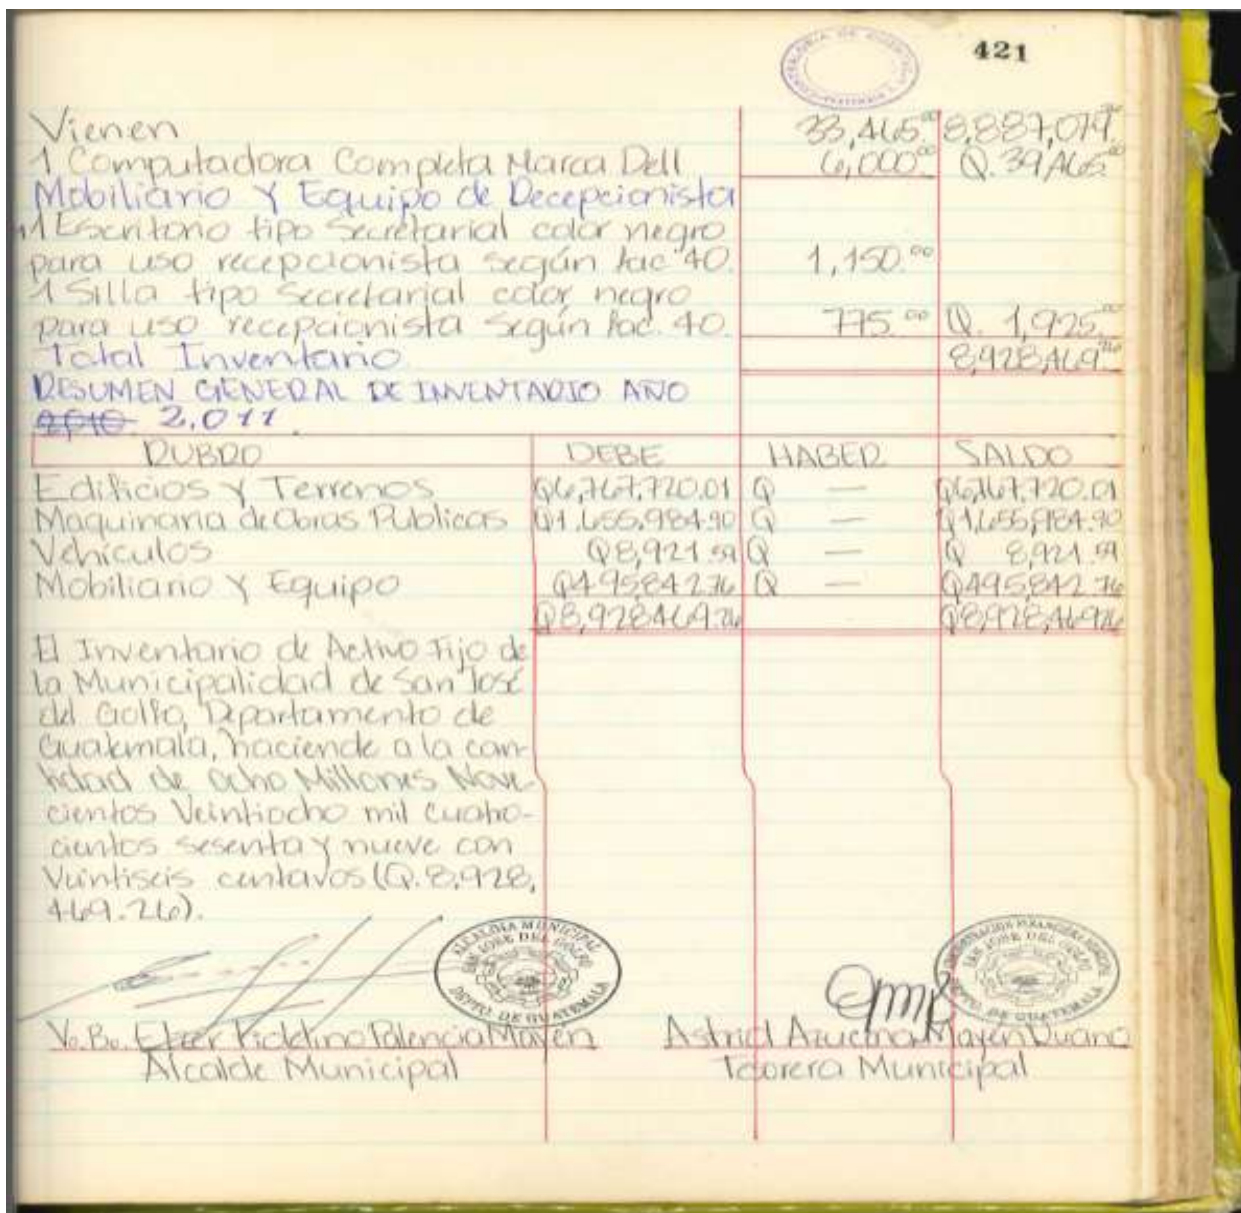 421
Vienen 33,465.00 8,887,079.26
1 Computadora Completa Marca Dell 6,000.00 Q. 39,465.00
Mobiliario Y Equipo de Recepcionista
1 Escritorio tipo Secretarial color negro
para uso recepcionista según fac 40. 1,150.00
1 Silla tipo Secretarial color negro
para uso recepcionista según fac. 40. 775.00 Q. 1,925.00
Total Inventario 8,928,469.26
RESUMEN GENERAL DE INVENTARIO AÑO
2,010 2,011.
RUBRO DEBE HABER SALDO
Edificios y Terrenos Q6,767,720.01 Q — Q6,767,720.01
Maquinaria de Obras Publicas Q1,655,984.90 Q — Q1,655,984.90
Vehiculos Q8,921.59 Q — Q 8,921.59
Mobiliario Y Equipo Q495842.76 Q — Q495,842.76
Q8,928469.26 Q8,928,469.26
El Inventario de Activo Fijo de
la Municipalidad de San José
del Golfo, Departamento de
Guatemala, haciende a la can-
tidad de Ocho Millones Nove-
cientos Veintiocho mil Cuatro-
cientos sesenta y nueve con
Veintiseis centavos (Q.8,928,
469.26).
ALCALDIA MUNICIPAL
SAN JOSE DEL GOLFO
DEPTO. DE GUATEMALA
SAN JOSE DEL GOLFO
DEPTO. DE GUATEMALA
Vo.Bo. Elzer Fidelino Palencia Mayén Astrid Azucena Mayén Ruano
Alcalde Municipal Tesorera Municipal